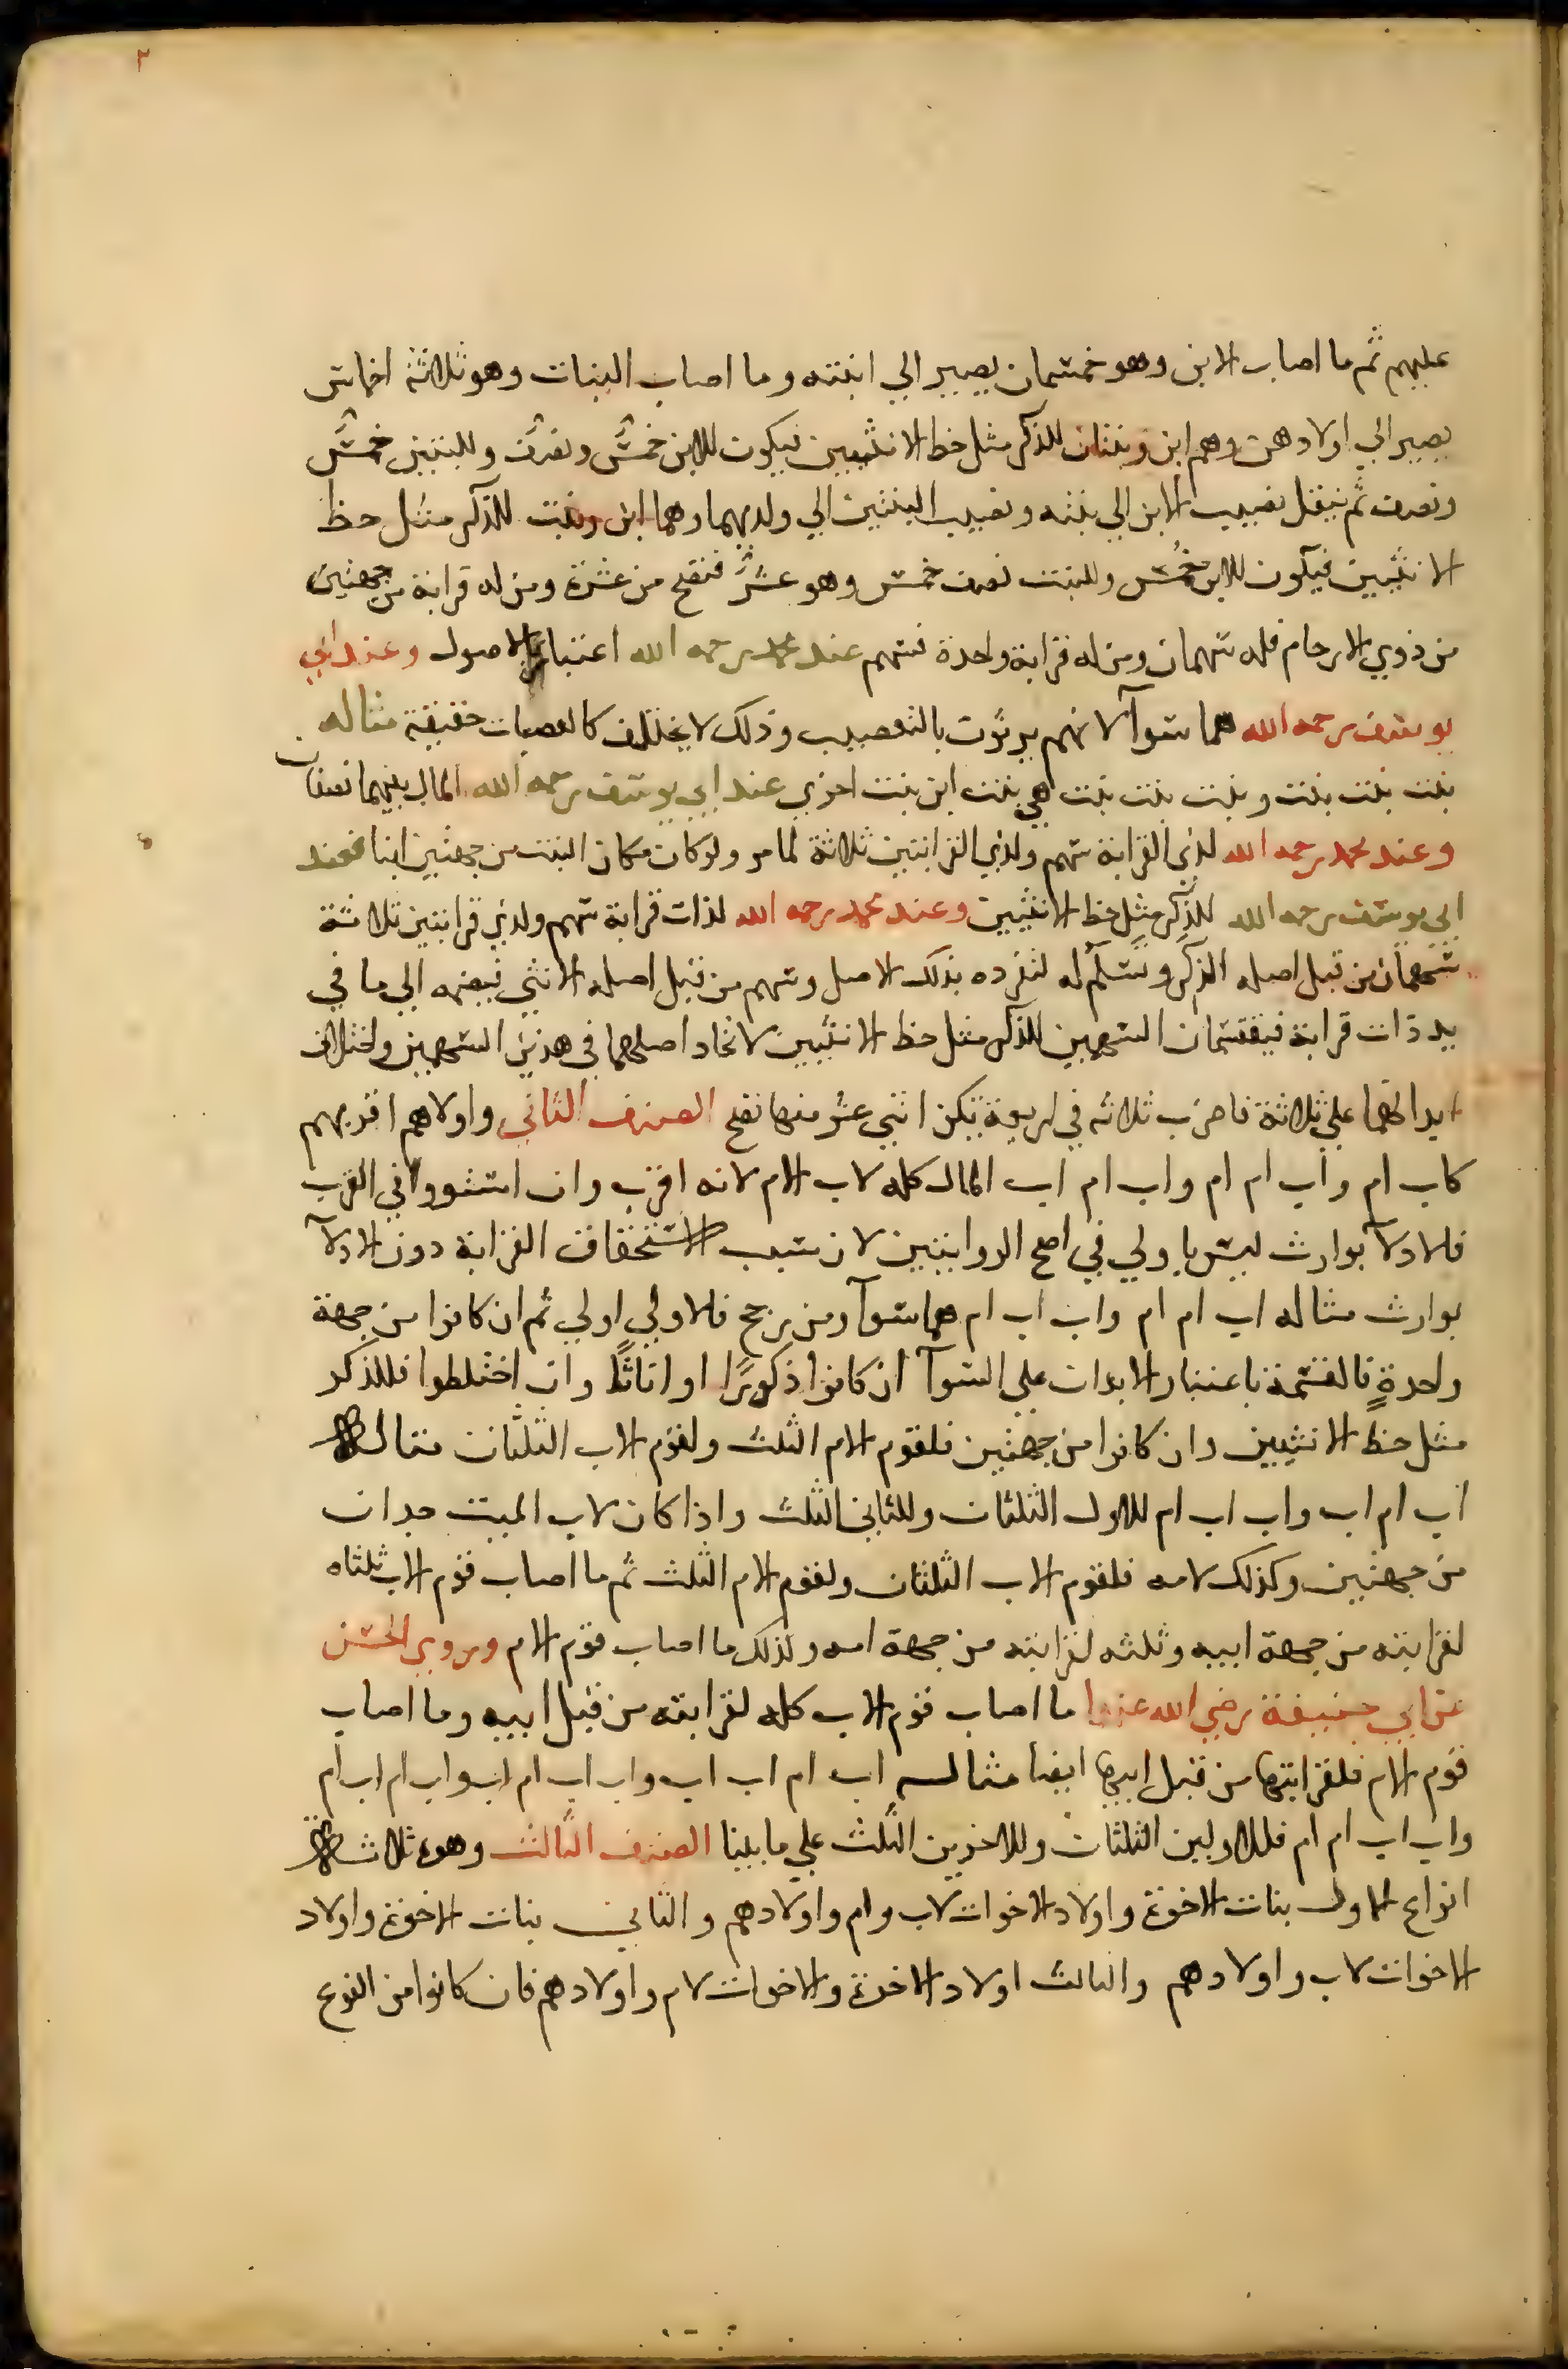 ٢
عليهم ثم ما اصاب الابن وهو خمسان يصير الي ابنته وما اصاب البنات وهو ثلاثة اخماس
يصير الي اولادهن وهم ابن وبنتان للذكر مثل حظ الانثيين فيكون للابن خمسٌ ونصف وللبنتين خمسٌ
ونصف ثم ينتقل نصيب الابن الي بنته ونصيب البنتين الي ولديهما وهما ابن وبنت للذكر مثل حظ
الانثيين فيكون للابن خُمس وللبنت نصف خمس وهو عشرٌ فتصح من عشرة ومن له قرابة من جهتين
من ذوي الارحام فله سهمان ومن له قرابة واحدة فسهم عند محمد رحمه الله اعتبارا بالاصول وعند ابي
يوسف رحمه الله هما سوآ لانهم يرثون بالتعصيب وذلك لا يختلف كالعصبات حقيقة مثاله
بنت بنت بنت وبنت بنت بنت هي بنت ابن بنت اخري عند ابي يوسف رحمه الله المال بينهما نصفان
وعند محمد رحمه الله لذي القرابة سهم ولذي القرابتين ثلاثة لما مر ولو كان مكان البنت من جهتين ابنا فعند
ابي يوسف رحمه الله للذكر مثل حظ الانثيين وعند محمد رحمه الله لذات قرابة سهم ولذي قرابتين ثلاثة
سهمان من قبل اصله الذكر وتسلم له لتفرده بذلك الاصل وسهم من قبل اصله الانثي فيضمه الي ما في
يد ذات قرابة فيقتسمان السهمين للذكر مثل حظ الانثيين لاتحاد اصلهما في هذين السهمين واختلاف
ابدانهما علي ثلاثة فاضرب ثلاثه في اربعة تكن اثني عشر منها تصح الصنف الثاني واولاهم اقربهم
كاب ام واب ام ام واب ام اب المال كله لاب الام لانه اقرب وان استووا في القرب
فالادلآ بوارث ليس باولي في اصح الروايتين لان سبب الاستحقاق القرابة دون الادلآ
بوارث مثاله اب ام ام واب اب ام هما سوآ ومن يرجح فالاولي اولي ثم ان كانوا من جهة
واحدةٍ فالقسمة باعتبار الابدان علي السوآ ان كانوا ذكورًا او اناثًا وان اختلطوا فللذكر
مثل حظ الانثيين وان كانوا من جهتين فلقوم الام الثلث ولقوم الاب الثلثان مثاله
اب ام اب واب اب ام للاول الثلثان وللثاني الثلث واذا كان لاب الميت جدان
من جهتين وكذلك لامه فلقوم الاب الثلثان ولقوم الام الثلث ثم ما اصاب قوم الاب ثلثاه
لقرابته من جهة ابيه وثلثه لقرابته من جهة امه وكذلك ما اصاب قوم الام وروي الحسن
عن ابي حنيفة رضي الله عنهما ما اصاب قوم الاب كله لقرابته من قبل ابيه وما اصاب
قوم الام فلقرابتها من قبل ابيها ايضا مثاله اب ام اب اب واب اب ام اب واب ام اب ام
واب اب ام ام فللاولين الثلثان وللاخرين الثلث علي ما بينا الصنف الثالث وهو ثلاثة
انواع الاول بنات الاخوة واولاد الاخوات لاب وام واولادهم والثاني بنات الاخوة واولاد
الاخوات لاب واولادهم والثالث اولاد الاخوة والاخوات لام واولادهم فان كانوا من النوع